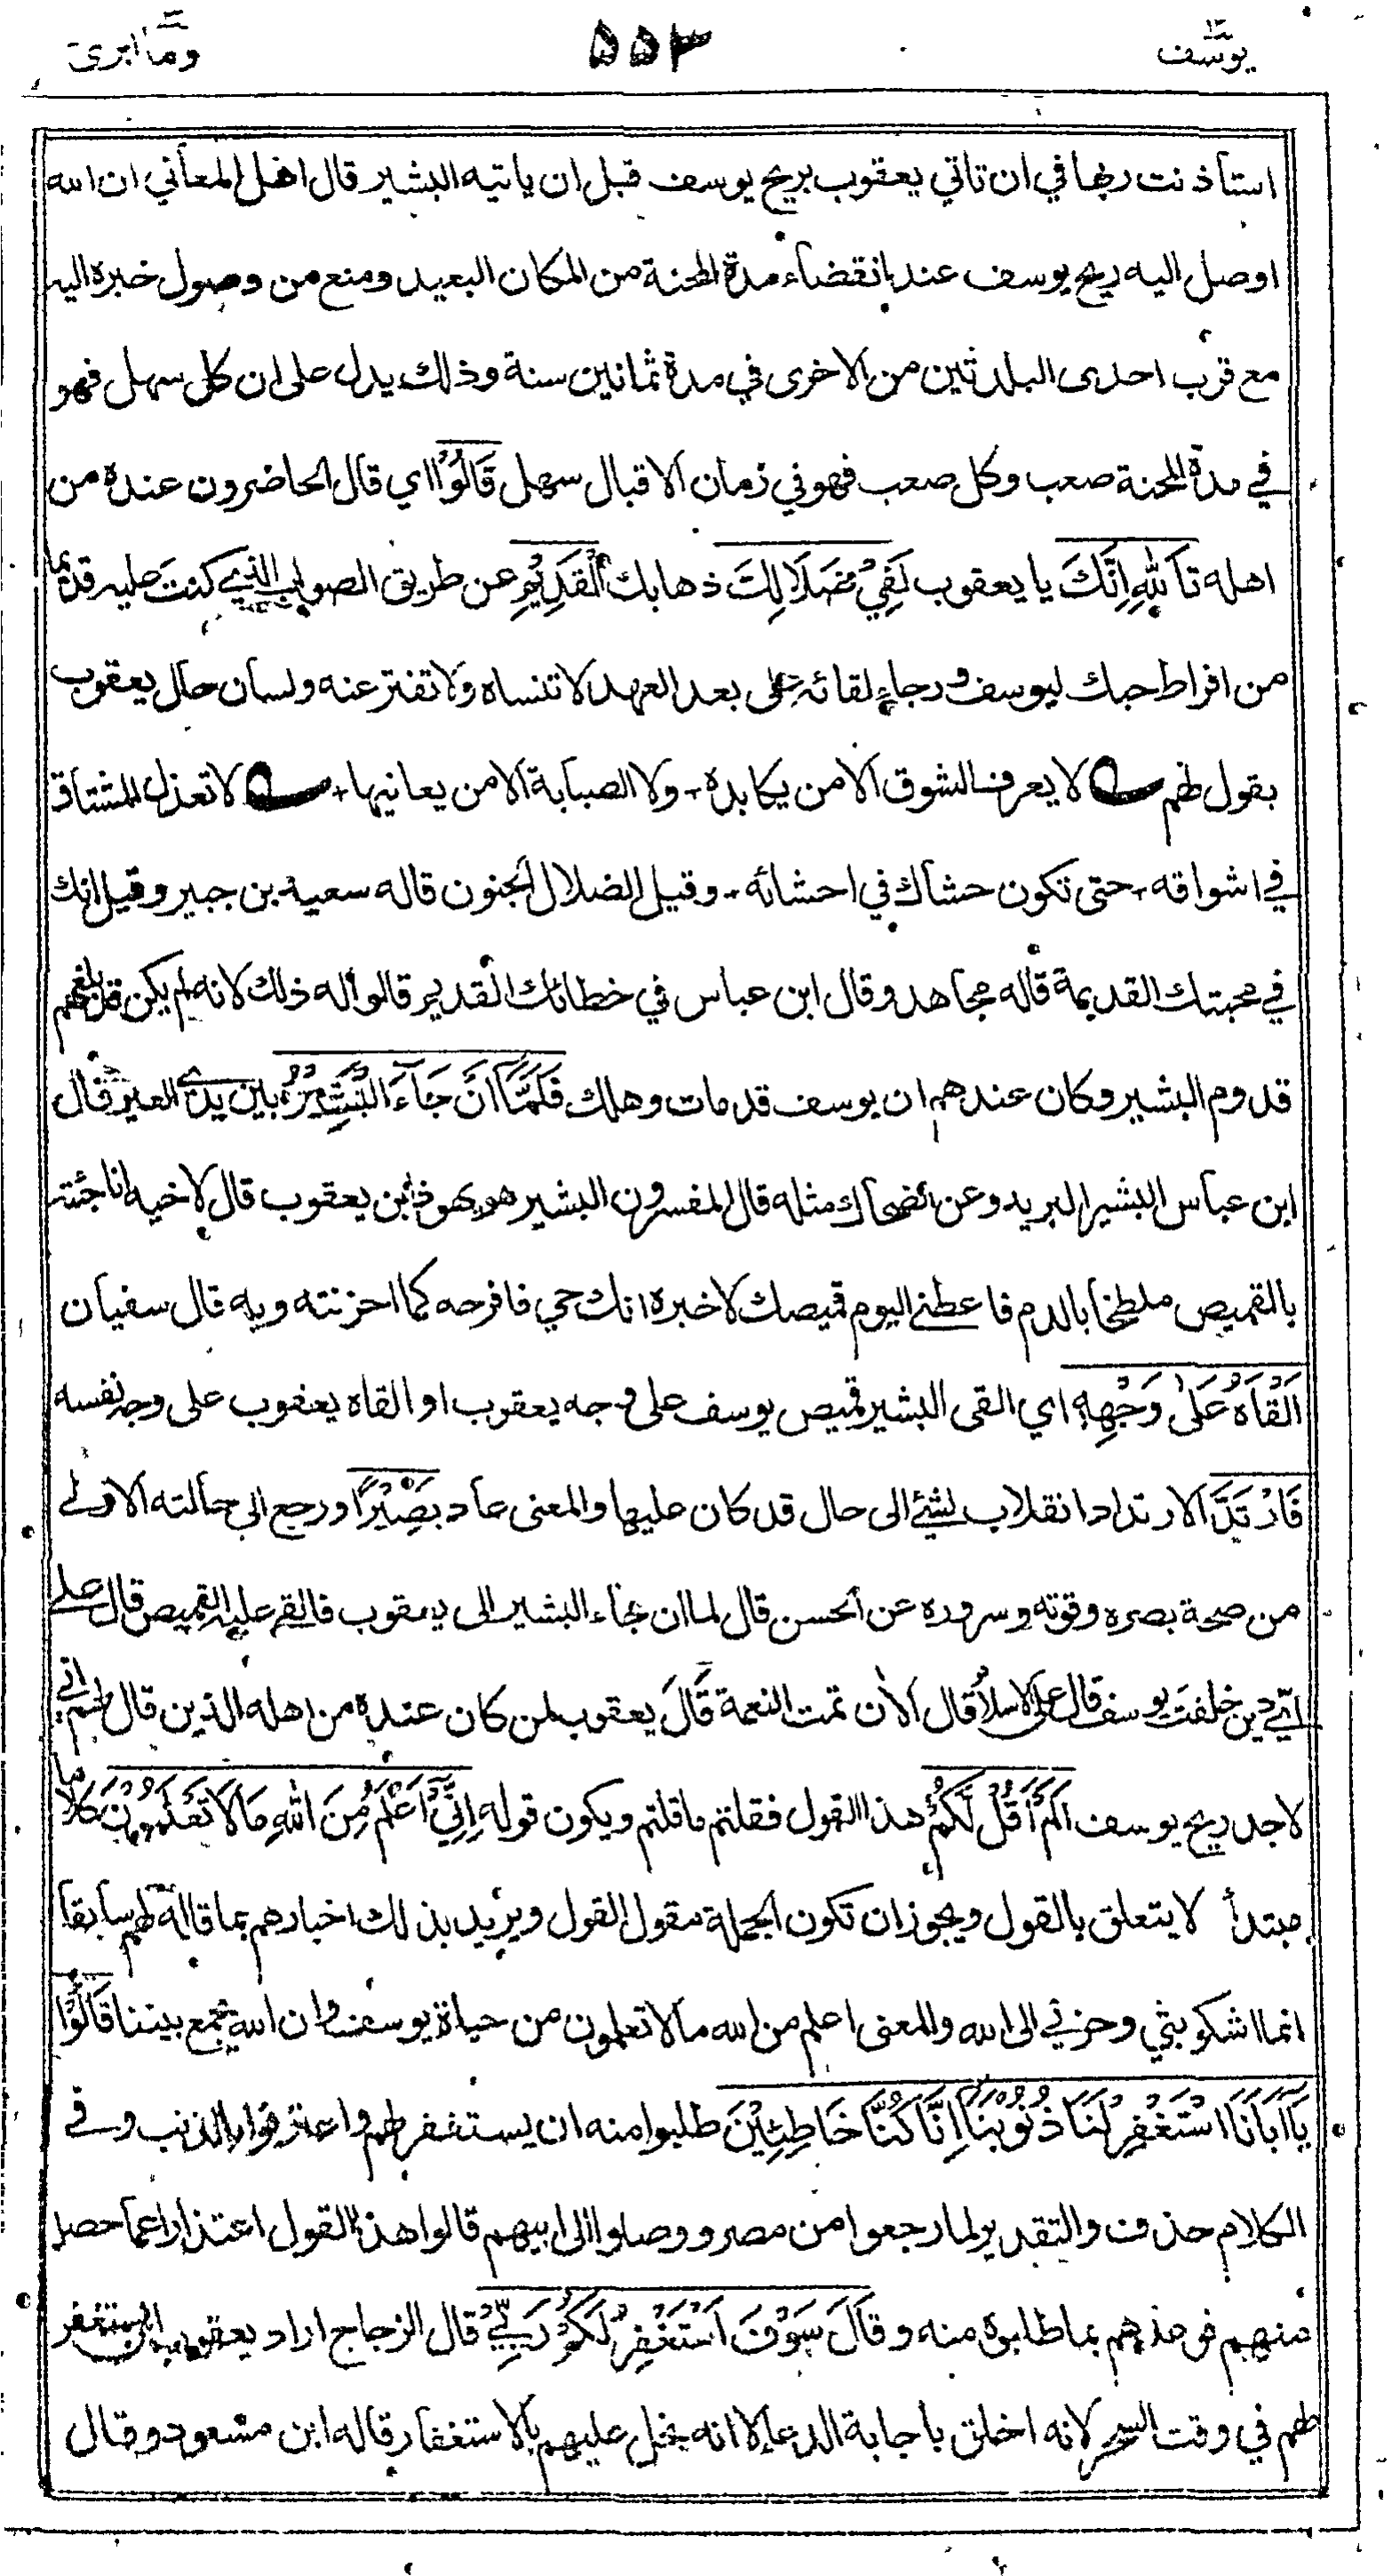 يوسف ١٢
٥٥٣
وما ابرئ
استأذنت ربها في ان تاتي يعقوب بريح يوسف قبل ان ياتيه البشير قال اهل المعاني ان الله
اوصل اليه ريح يوسف عند انقضاء مدة المحنة من المكان البعيد ومنع من وصول خبره اليه
مع قرب احدى البلدتين من الاخرى في مدة ثمانين سنة وذلك يدل على ان كل سهل فهو
في مدة المحنة صعب وكل صعب فهو في زمان الاقبال سهل قَالُوْا اي قال الحاضرون عنده من
اهله تَاللهِ اِنَّكَ يا يعقوب لَفِيْ ضَلَالِكَ ذهابك الْقَدِيْمِ عن طريق الصواب الذي كنت عليه قديما
من افراط حبك ليوسف ورجاء لقائه على بعد العهد لا تنساه ولا تفتر عنه ولسان حال يعقوب
يقول لهم لا يعرف الشوق الا من يكابده - ولا الصبابة الا من يعانيها + لا تعذل المشتاق
في اشواقه - حتى تكون حشاك في احشائه - وقيل الضلال الجنون قاله سعيد بن جبير وقيل انك
في محبتك القديمة قاله مجاهد وقال ابن عباس في خطائك القديم قالوا له ذلك لانه لم يكن قد بلغهم
قدوم البشير وكان عندهم ان يوسف قد مات وهلك فَلَمَّا اَنْ جَآءَ الْبَشِيْرُ بين يدي العير قال
ابن عباس البشير البريد وعن الضحاك مثله قال المفسرون البشير هو يهوذا بن يعقوب قال لاخيه انا جئته
بالقميص ملطخا بالدم فاعطني اليوم قميصك لاخبره انك حي فافرحه كما احزنته وبه قال سفيان
اَلْقَاهُ عَلٰى وَجْهِهٖ اي القى البشير قميص يوسف على وجه يعقوب او القاه يعقوب على وجه نفسه
فَارْتَدَّ الارتداد انقلاب الشئ الى حال قد كان عليها والمعنى عاد بَصِيْرًا ورجع الى حالته الاولى
من صحة بصره وقوته وسروره عن الحسن قال لما ان جاء البشير الى يعقوب فالقى عليه القميص قال على
اي دين خلفت يوسف قال على الاسلام قال الآن تمت النعمة قَالَ يعقوب لمن كان عنده من اهله الذين قال لهم اني
لاجد ريح يوسف اَلَمْ اَقُلْ لَّكُمْ هذا القول فقلتم ما قلتم ويكون قوله اِنِّيْ اَعْلَمُ مِنَ اللهِ مَا لَا تَعْلَمُوْنَ كلاما
مبتدأ لا يتعلق بالقول ويجوز ان تكون الجملة مقول القول ويريد بذلك اخبارهم بما قاله لهم سابقا
انما اشكو بثي وحزني الى الله والمعنى اعلم من الله ما لا تعلمون من حياة يوسف وان الله يجمع بيننا قَالُوْا
يَا اَبَانَا اسْتَغْفِرْ لَنَا ذُنُوْبَنَا اِنَّا كُنَّا خَاطِئِيْنَ طلبوا منه ان يستغفر لهم واعترفوا بالذنب وفي
الكلام حذف والتقدير لما رجعوا من مصر ووصلوا الى ابيهم قالوا هذا القول اعتذارا عما حصل
منهم فوعدهم بما طلبوه منه و قَالَ سَوْفَ اَسْتَغْفِرُ لَكُمْ رَبِّيْ قال الزجاج اراد يعقوب ان يستغفر
لهم في وقت السحر لانه اخلق باجابة الدعاء لا انه بخل عليهم بالاستغفار قاله ابن مسعود وقال